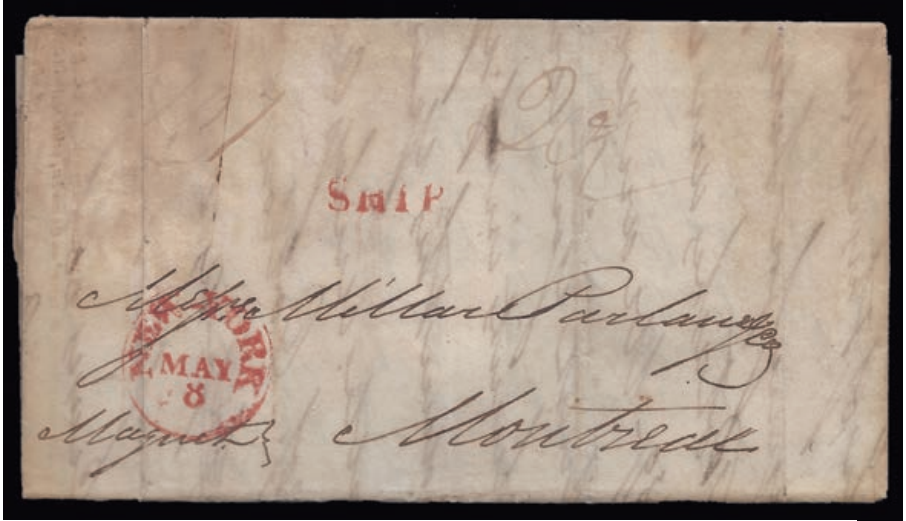 SHIP
Messrs Millar Parlane & Co
NEW YORK
MAY
8
Magnet
Montreal